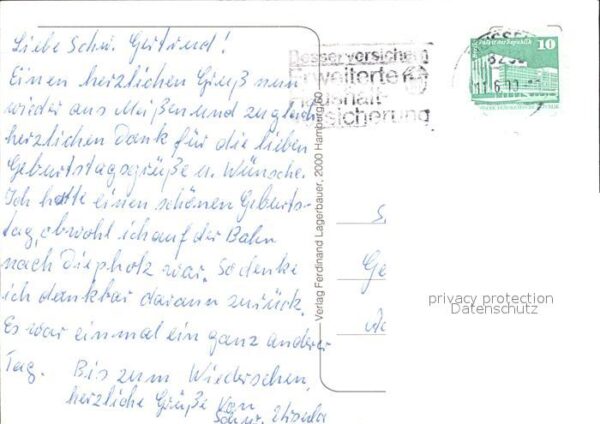 Liebe Schw. Gertrud!
Einen herzlichen Gruß nun
wieder aus Meißen und zugleich
herzlichen Dank für die lieben
Geburtstagsgrüße u. Wünsche.
Ich hatte einen schönen Geburts-
tag, obwohl ich auf der Bahn
nach Diepholz war. So denke
ich dankbar daran zurück.
Es war einmal ein ganz anderer
Tag. Bis zum Wiedersehen,
herzliche Grüße von
Schw.
Besser versichern
Erweiterte
Haushalt-
versicherung
10
Verlag Ferdinand Lagerbauer, 2000 Hamburg 60
privacy protection
Datenschutz